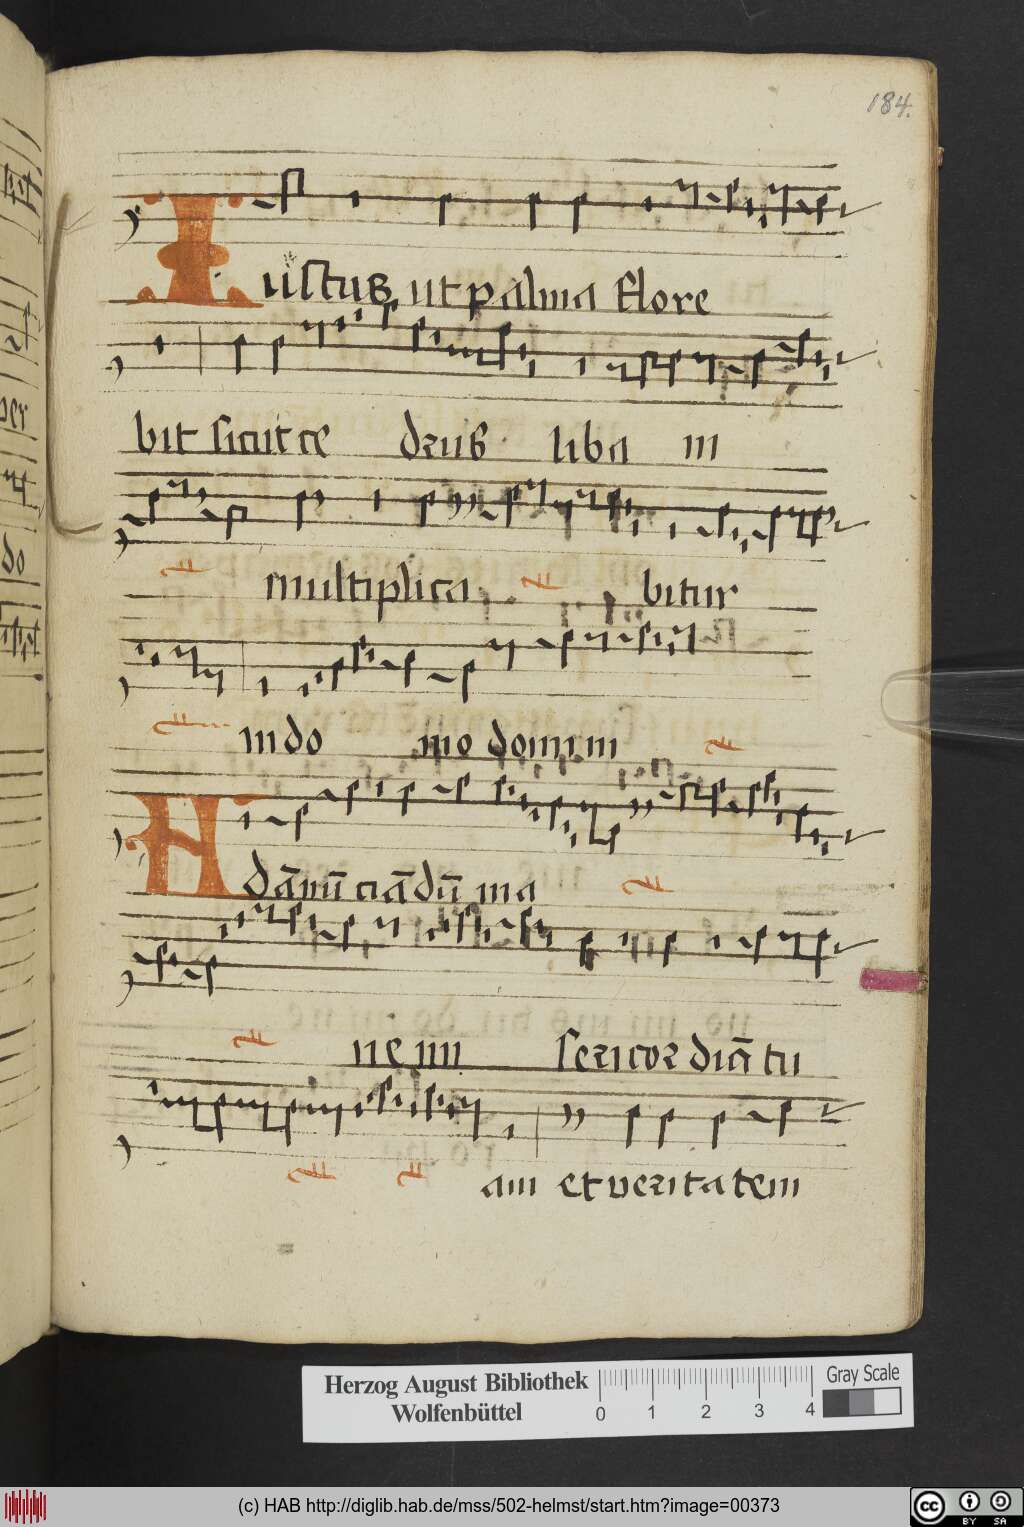 184.
Iustus ut palma flore
bit sicut ce drus liba ni
multiplica bitur
in do mo domini
Ad ānūciādū ma
ne mi sericordiā tu
am et veritatem
per
do
Herzog August Bibliothek
Wolfenbüttel
0 1 2 3 4
Gray Scale
(c) HAB http://diglib.hab.de/mss/502-helmst/start.htm?image=00373
cc BY SA